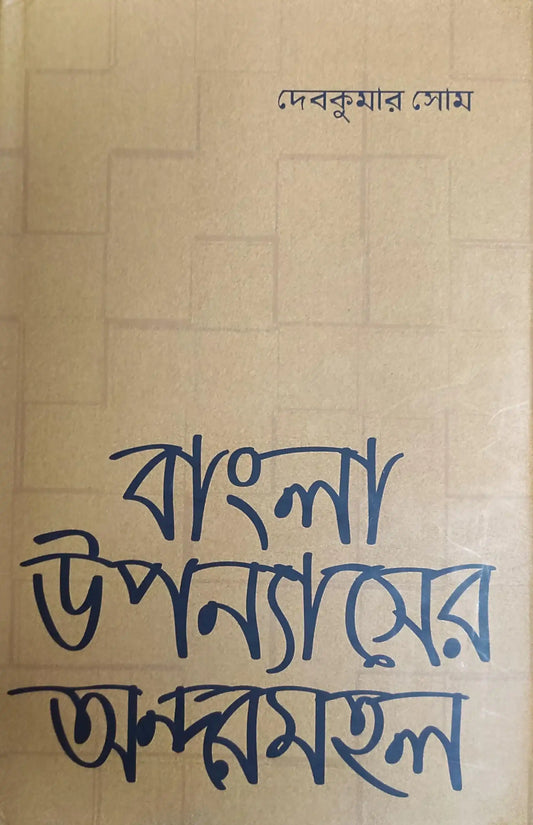 দেবকুমার সোম
বাংলা
উপন্যাসের
অন্দরমহল